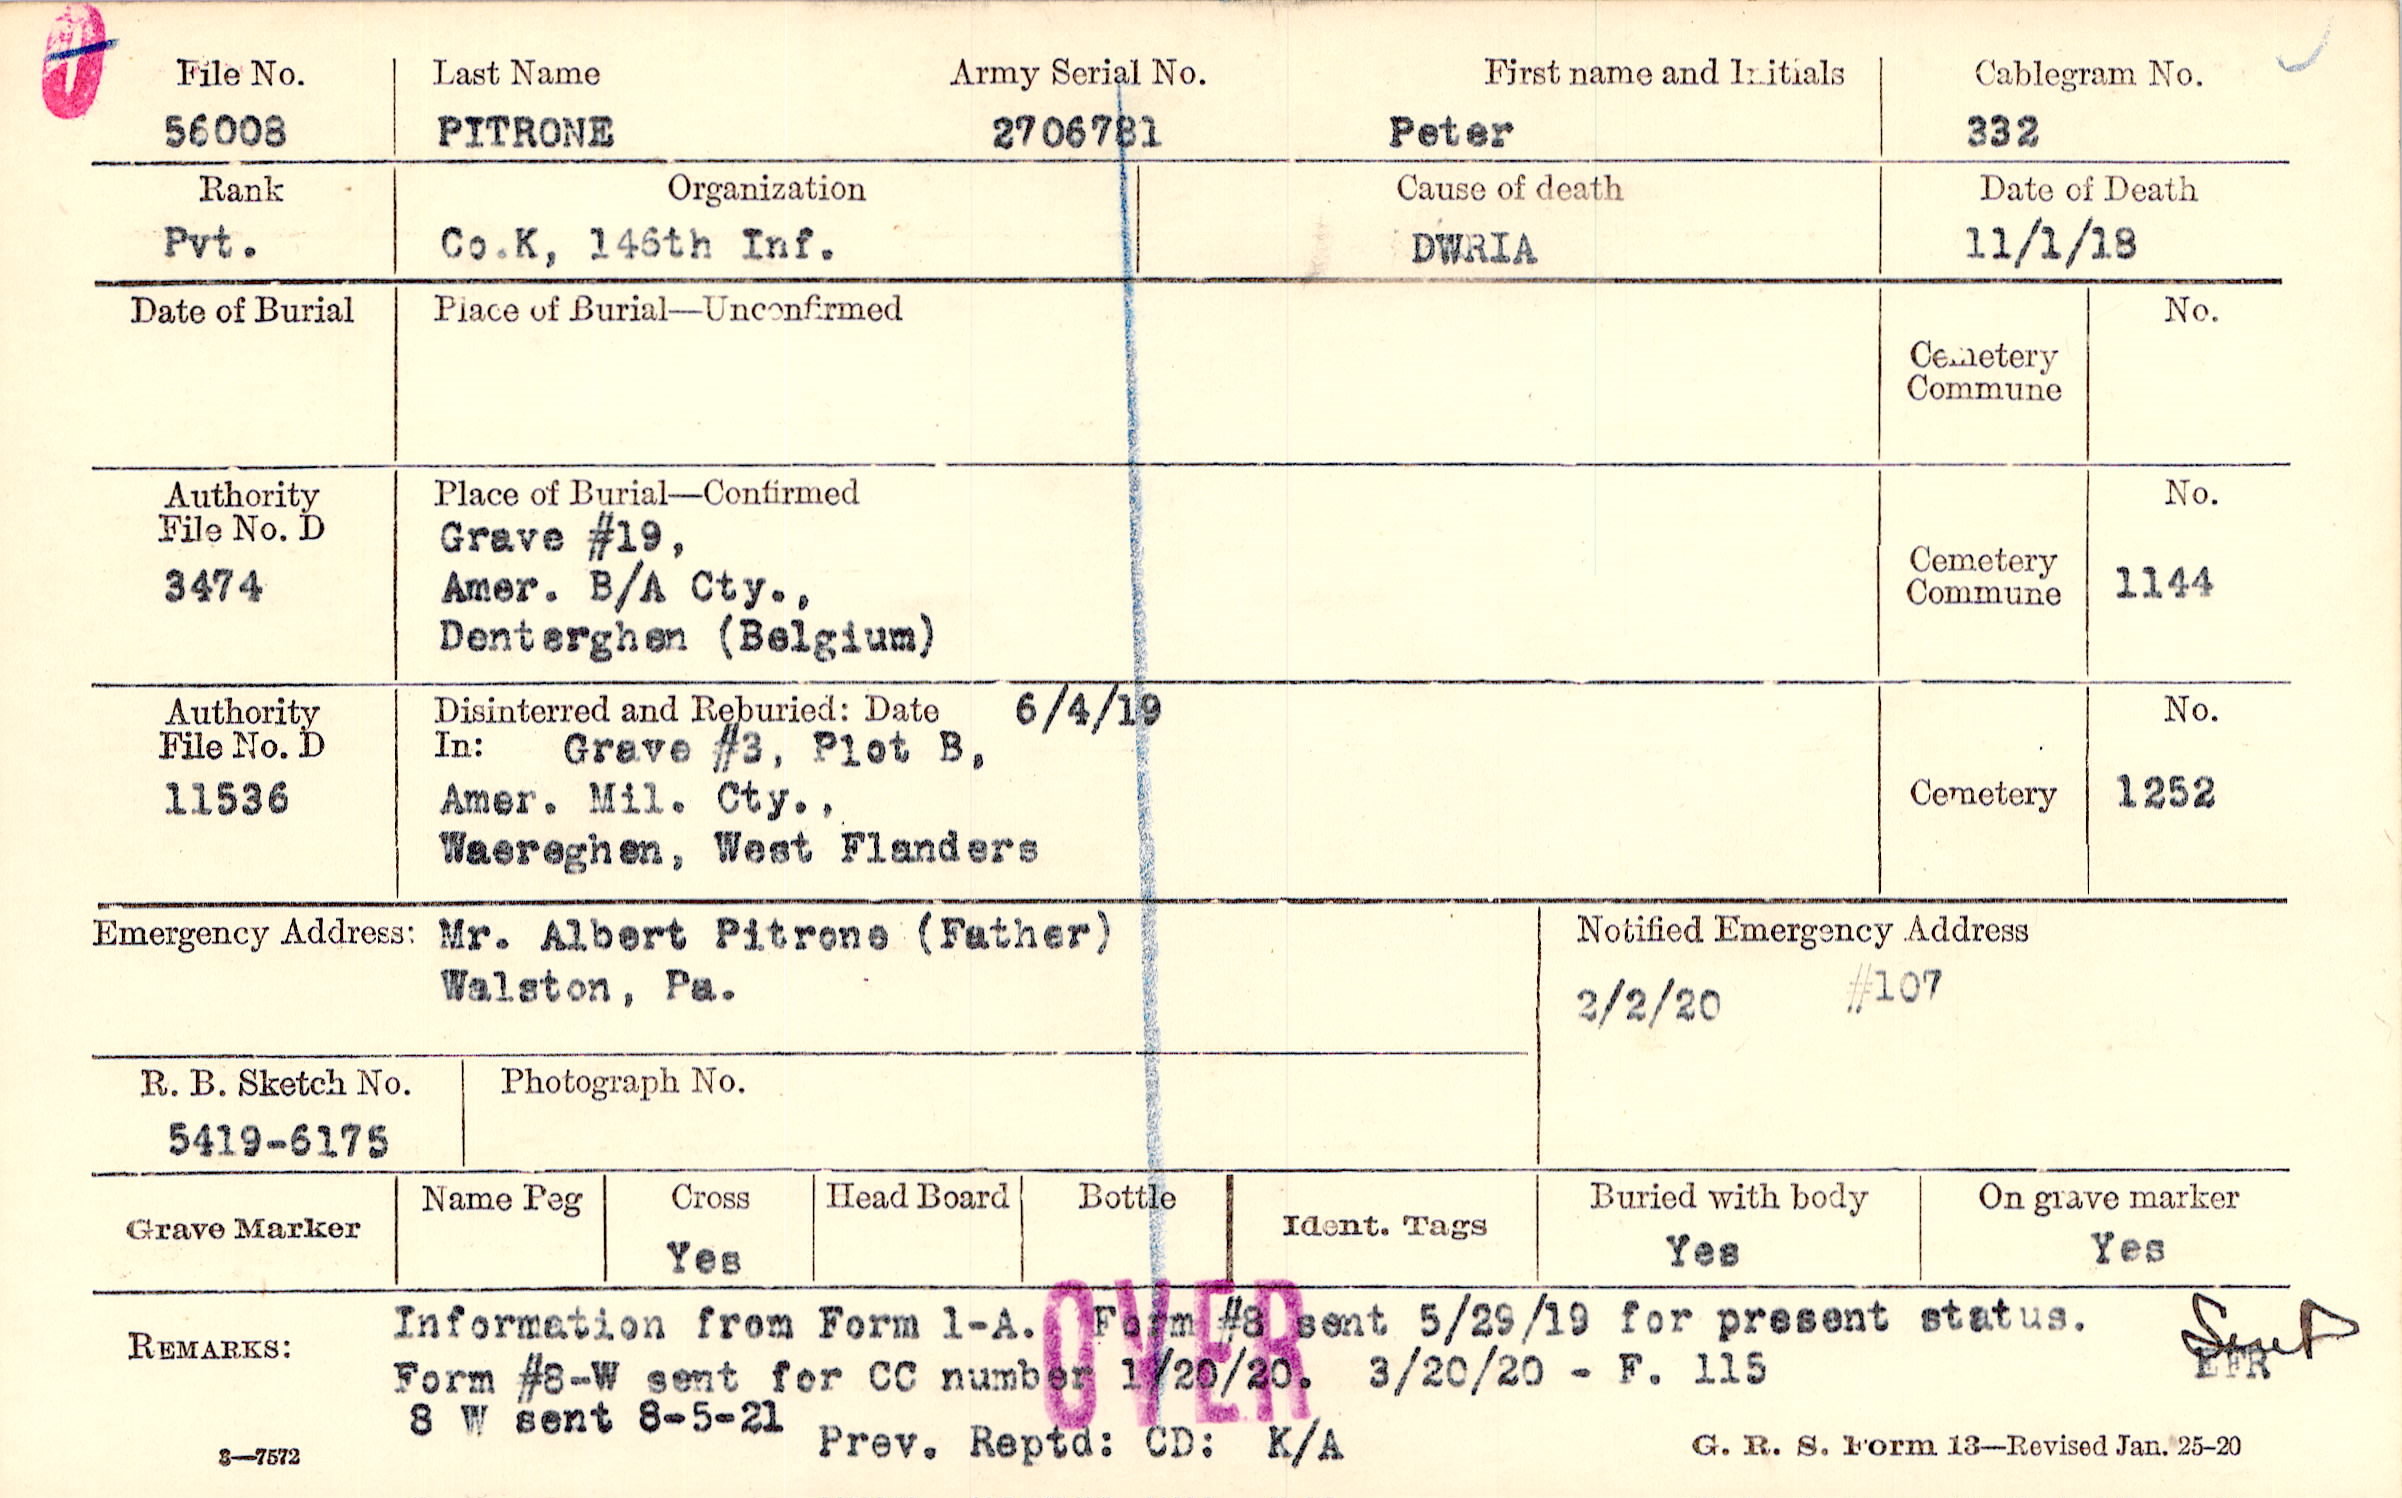 File No. Last Name Army Serial No. First name and Initials Cablegram No.
56008 PITRONE 2706781 Peter 332
Rank Organization Cause of death Date of Death
Pvt. Co.K, 146th Inf. DWRIA 11/1/18
Date of Burial Place of Burial—Unconfirmed No.
Cemetery
Commune
Authority Place of Burial—Confirmed No.
File No. D Grave #19,
3474 Amer. B/A Cty., Cemetery 1144
Denterghen (Belgium) Commune
Authority Disinterred and Reburied: Date 6/4/19 No.
File No. D In: Grave #3, Plot B,
11536 Amer. Mil. Cty., Cemetery 1252
Waereghen, West Flanders
Emergency Address: Mr. Albert Pitrone (Father) Notified Emergency Address
Walston, Pa. 2/2/20 #107
R. B. Sketch No. Photograph No.
5419-6175
Grave Marker Name Peg Cross Head Board Bottle Ident. Tags Buried with body On grave marker
Yes Yes Yes
OVER
REMARKS: Information from Form 1-A. Form #8 sent 5/29/19 for present status.
Form #8-W sent for CC number 1/20/20. 3/20/20 - F. 115 EFR
8 W sent 8-5-21
Prev. Reptd: CD: K/A
3—7572 G. R. S. Form 13—Revised Jan. 25-20